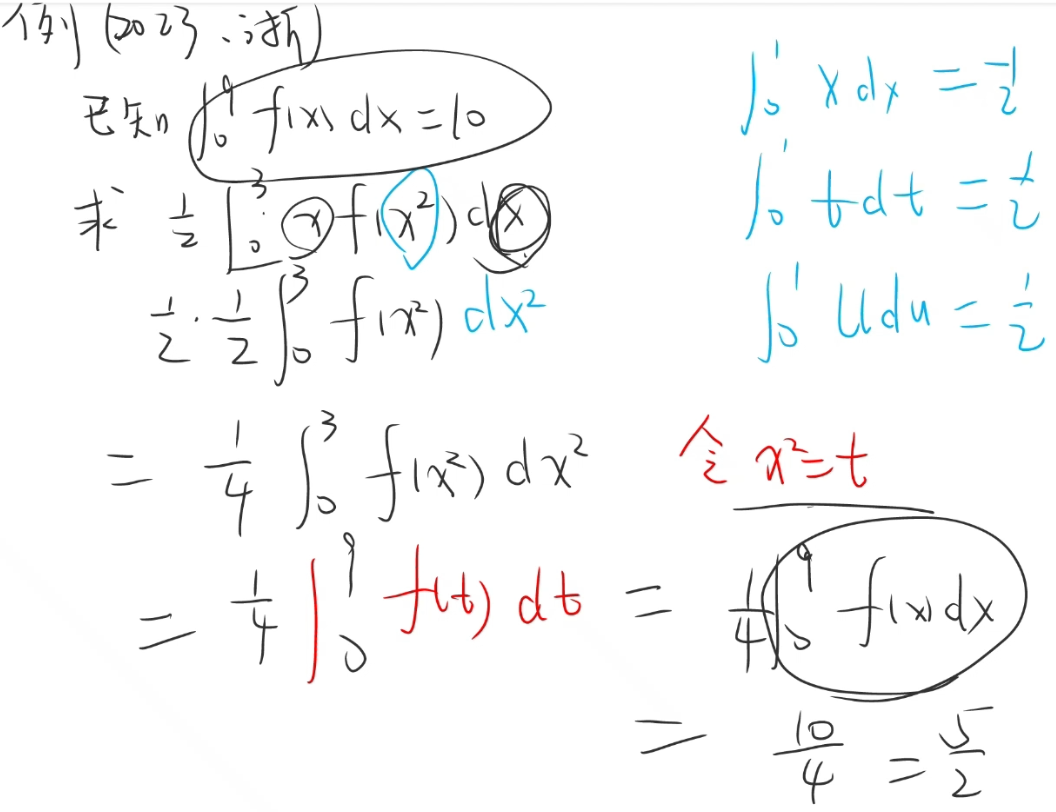 例 (2023.浙)
已知 ∫₀⁹ f(x) dx = 10
求 1/2 ∫₀³ x f(x²) dx
1/2 · 1/2 ∫₀³ f(x²) dx²
= 1/4 ∫₀³ f(x²) dx²
令 x² = t
= 1/4 ∫₀⁹ f(t) dt = 1/4 ∫₀⁹ f(x) dx
= 10/4 = 5/2
∫₀¹ x dx = 1/2
∫₀¹ t dt = 1/2
∫₀¹ u du = 1/2